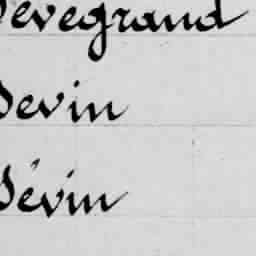 Devegrand
Devin
Dévin